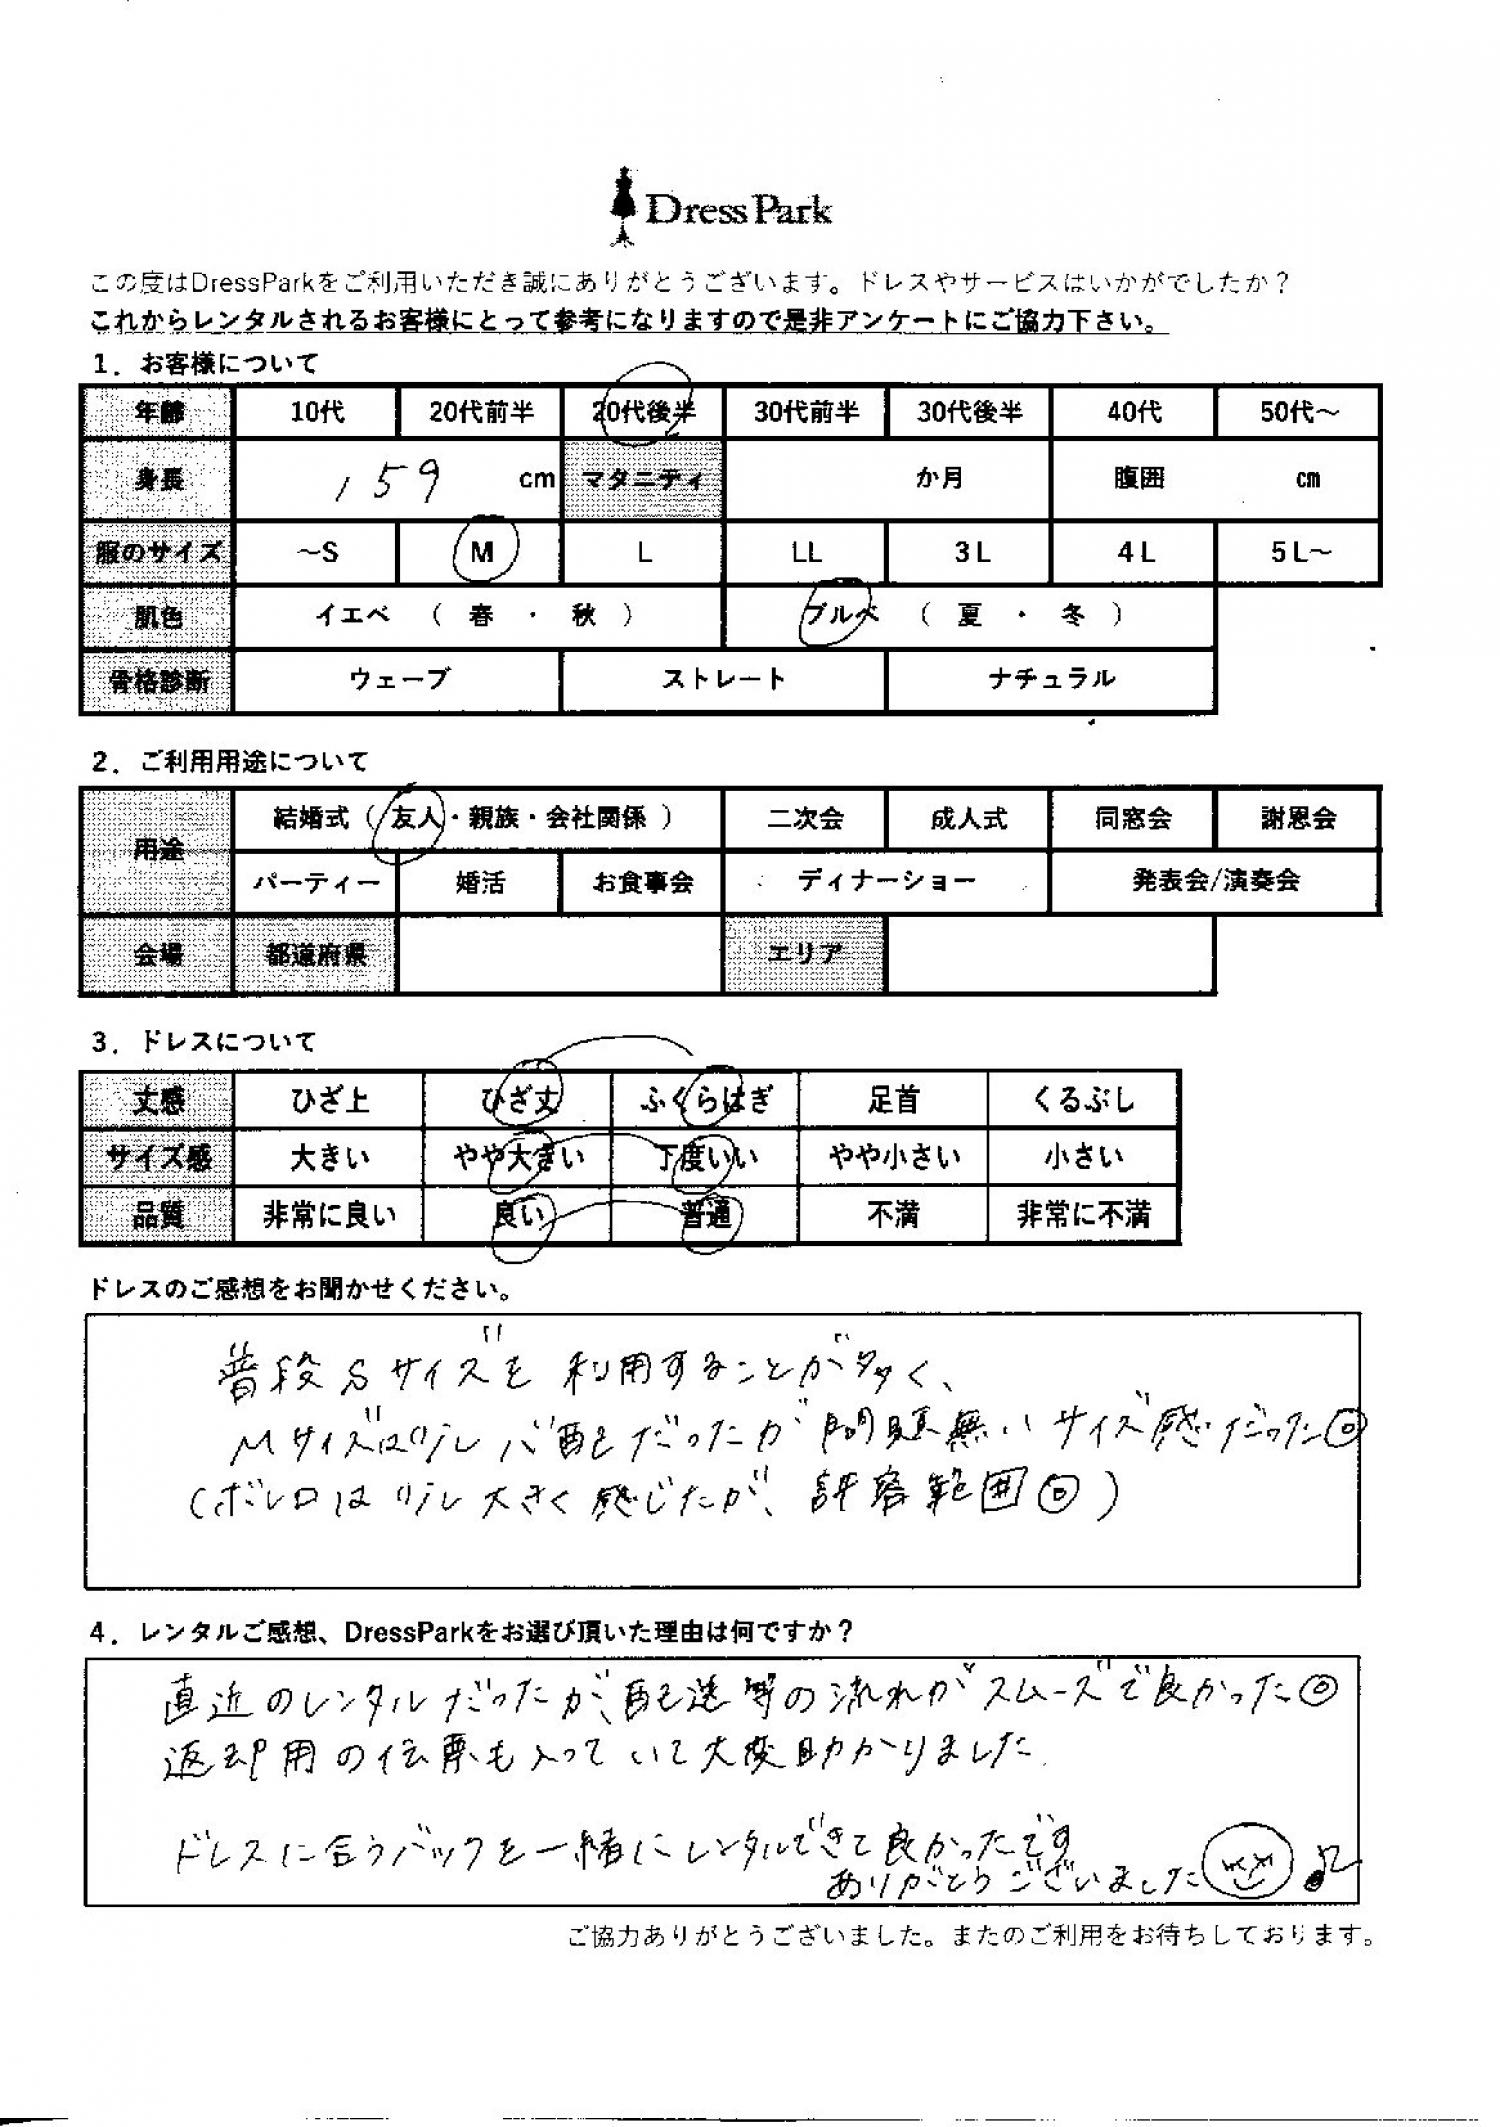 Dress Park
この度はDressParkをご利用いただき誠にありがとうございます。ドレスやサービスはいかがでしたか？
これからレンタルされるお客様にとって参考になりますので是非アンケートにご協力下さい。
1．お客様について
年齢 10代 20代前半 20代後半 30代前半 30代後半 40代 50代～
身長 159 cm マタニティ か月 腹囲 cm
服のサイズ ～S M L LL 3L 4L 5L～
肌色 イエベ （ 春 ・ 秋 ） ブルベ （ 夏 ・ 冬 ）
骨格診断 ウェーブ ストレート ナチュラル
2．ご利用用途について
用途 結婚式（ 友人・親族・会社関係 ） 二次会 成人式 同窓会 謝恩会
パーティー 婚活 お食事会 ディナーショー 発表会/演奏会
会場 都道府県 エリア
3．ドレスについて
丈感 ひざ上 ひざ丈 ふくらはぎ 足首 くるぶし
サイズ感 大きい やや大きい 丁度いい やや小さい 小さい
品質 非常に良い 良い 普通 不満 非常に不満
ドレスのご感想をお聞かせください。
普段Sサイズを利用することが多く、
Mサイズは少し心配だったが問題無いサイズ感だった◎
（ボレロは少し大きく感じたが、許容範囲◎）
4．レンタルご感想、DressParkをお選び頂いた理由は何ですか？
直近のレンタルだったが、配送等の流れがスムーズで良かった◎
返却用の伝票も入っていて大変助かりました.
ドレスに合うバックを一緒にレンタルできて良かったです
ありがとうございました
ご協力ありがとうございました。またのご利用をお待ちしております。